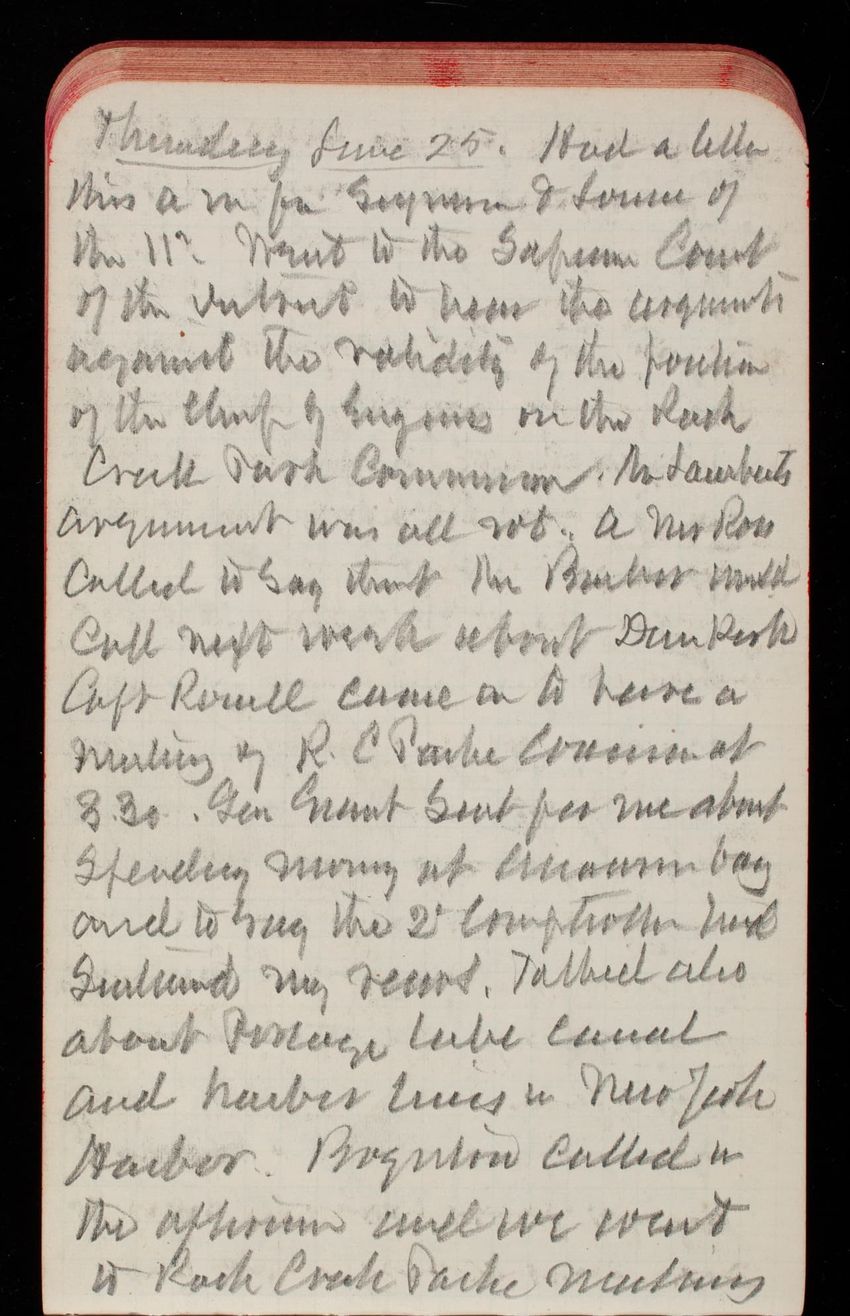 Thursday June 25. Had a letter
this a m fr Seymour & Louise of
the 11th. Went to the Supreme Court
of the District to hear the arguments
against the validity of the position
of the Chief of Engines on the Rock
Creek Park Commission. Mr Lamberts
argument was all rot. A Mr Ross
Called to say that Mr Barber would
Call next week about Dun Kirk
Capt Rowell came in to have a
meeting of R. C Parke Commission at
3.30. Gen Grant Sent for me about
Spending money at bay
and to say the 2d Comptroller had
Sustained my views. Talked also
about Portage lake Canal
and harbor lines in New York
Harbor. Boynton called in
the afternoon and we went
to Rock Creek Parke meeting